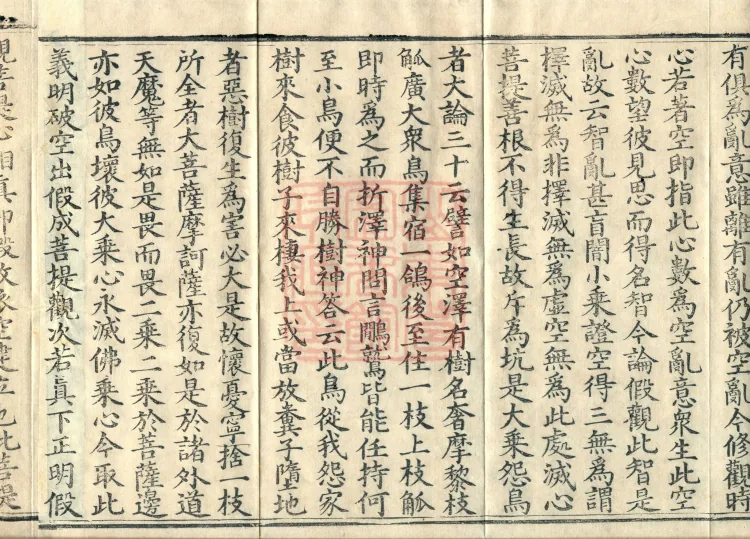 有俱為亂意雖離有亂仍被空亂今修觀時
心若著空即指此心數為空亂意衆生此空
心數望彼見思而得名智今論假觀此智是
亂故云智亂甚盲闇小乘證空得三無為謂
擇滅無為非擇滅無為虛空無為此處滅心
菩提善根不得生長故斥為坑是大乘怨鳥
者大論三十云譬如空澤有樹名奢摩黎枝
觚廣大衆鳥集宿一鴿後至住一枝上枝觚
即時為之而折澤神問言鵰鷲皆能任持何
至小鳥便不自勝樹神答云此鳥從我怨家
樹來食彼樹子來棲我上或當放糞子墮地
者惡樹復生為害必大是故懷憂寧捨一枝
所全者大菩薩摩訶薩亦復如是於諸外道
天魔等無如是畏而畏二乘二乘於菩薩邊
亦如彼鳥壞彼大乘心永滅佛乘心今取此
義明破空出假成菩提觀次若真下正明假
觀言是心相真即